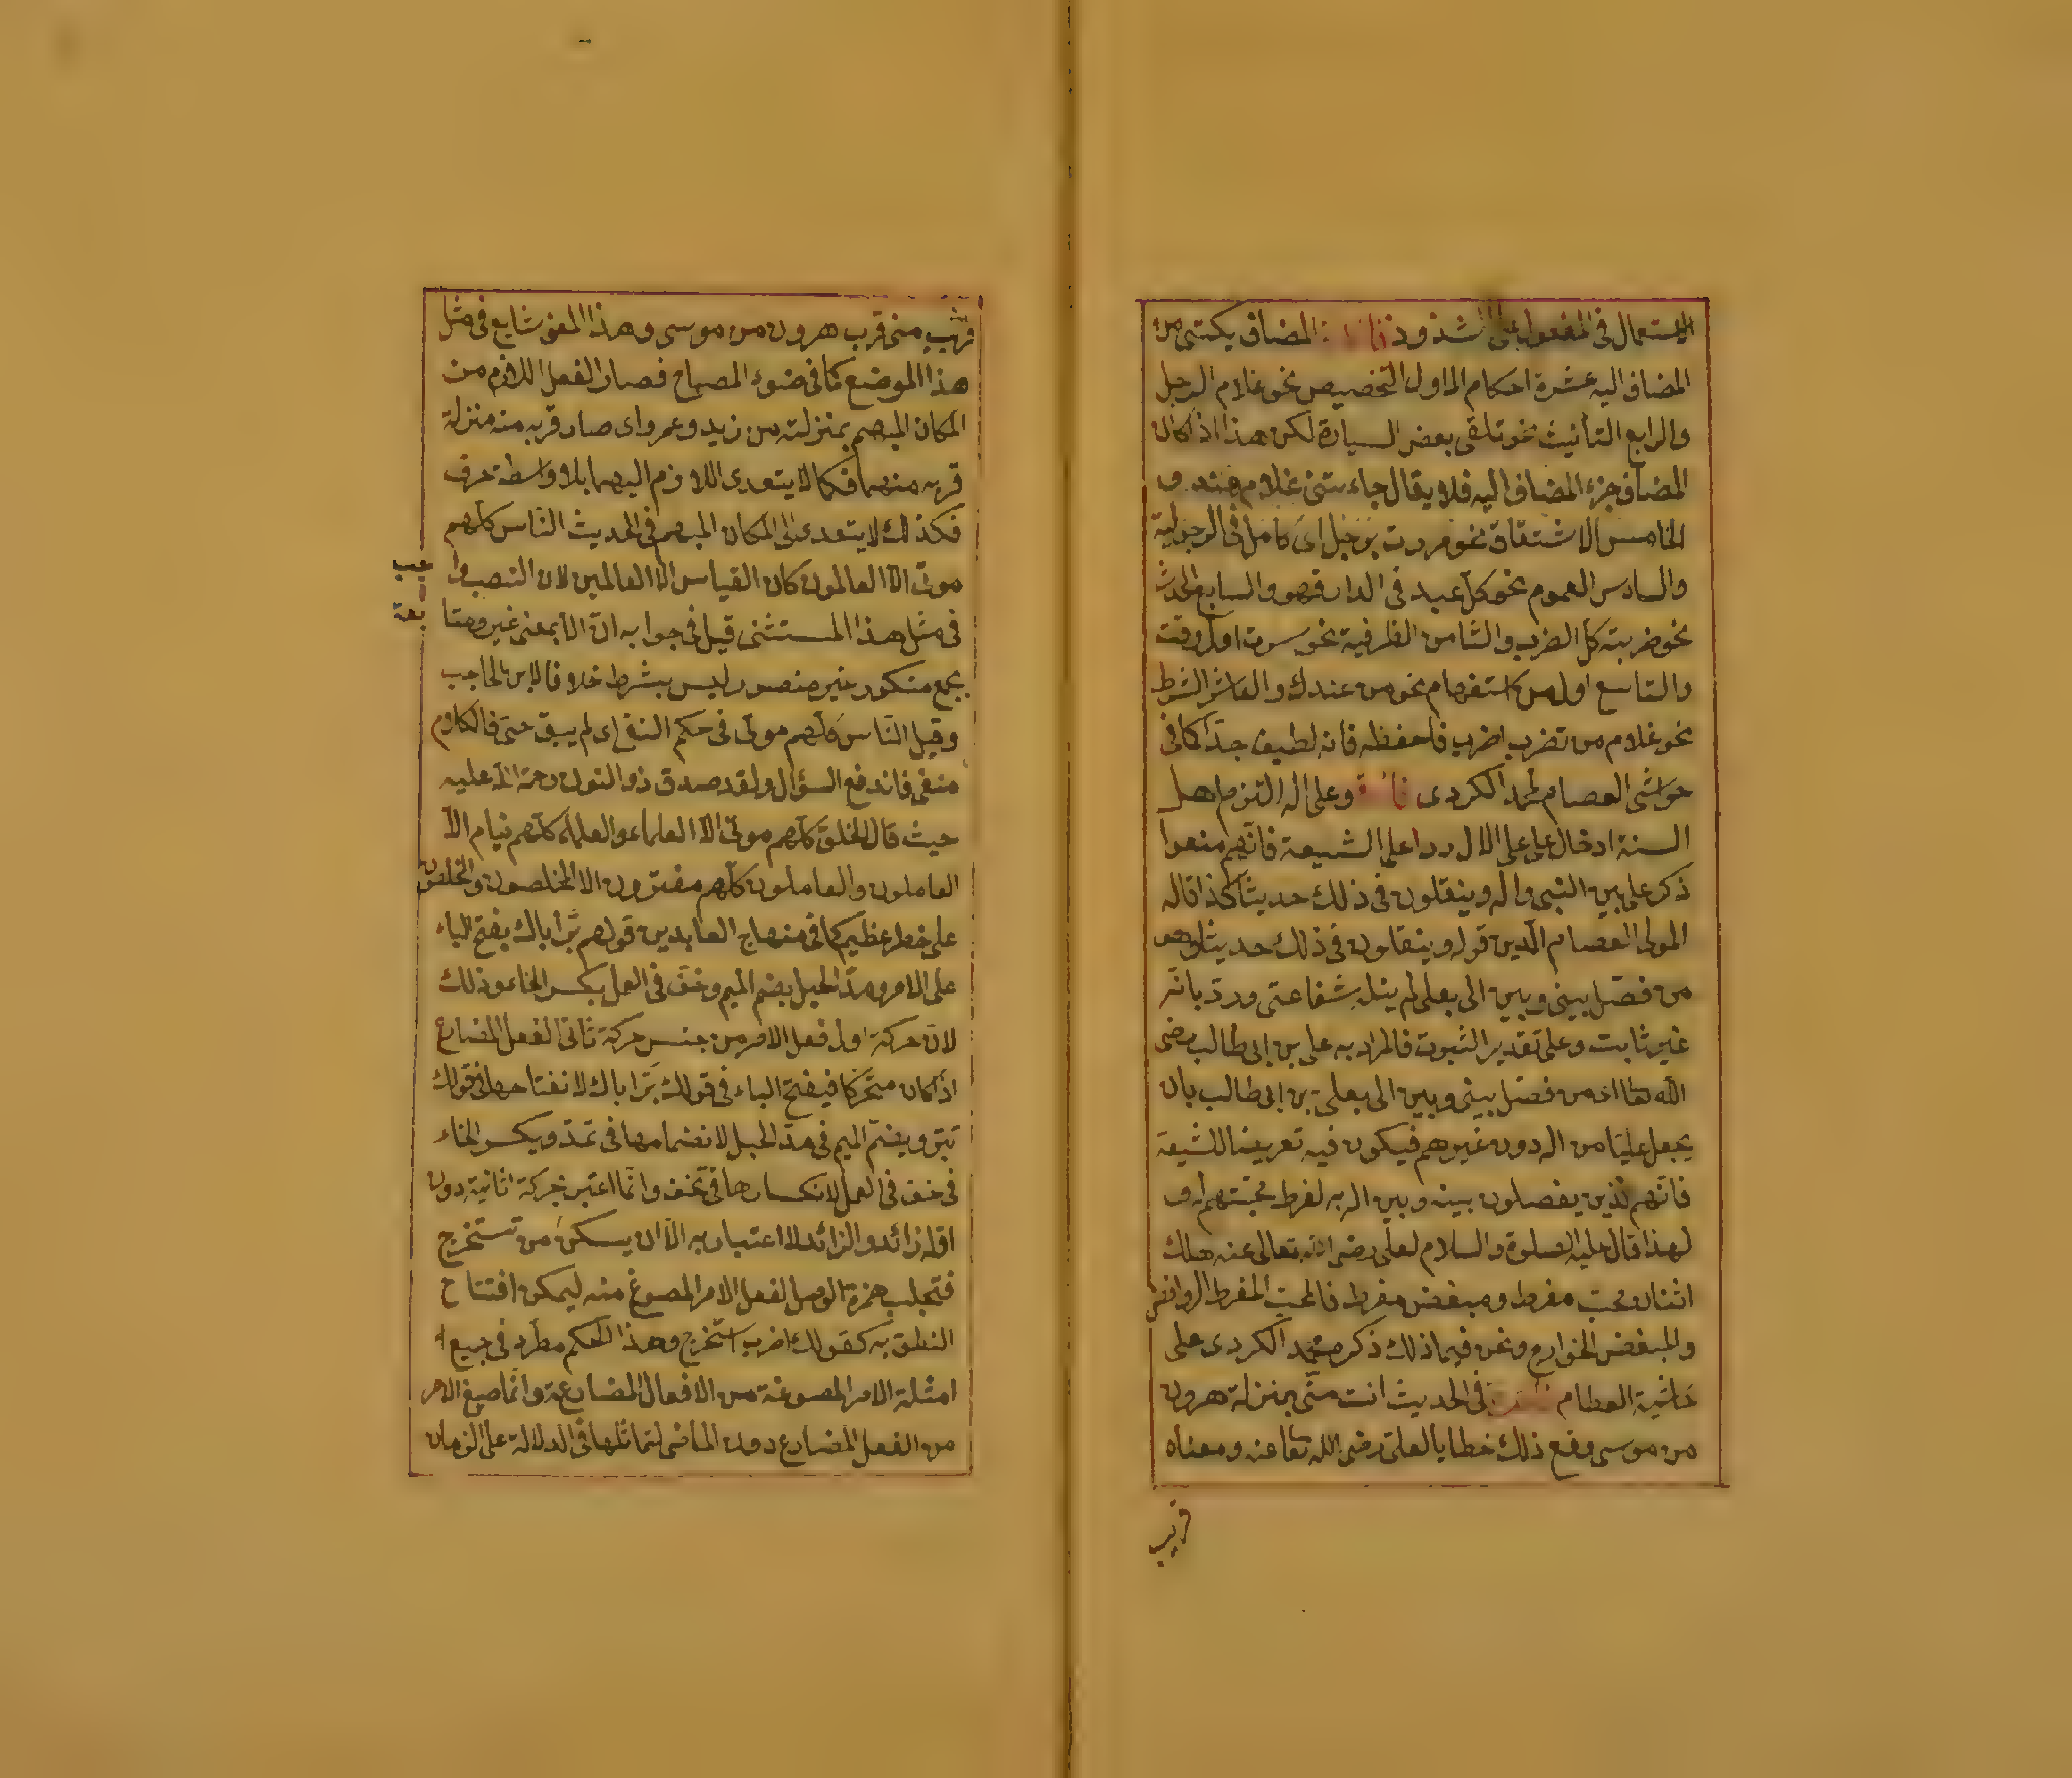 الاستعمال فى المفعول على الشذوذ المضاف يكتسى من
المضاف اليه عشرة احكام الاول التخصيص نحو غلام الرجل
والرابع التأنيث نحو تلتقى بعض السيارة لكن هذا اذا كان
المضاف جزء المضاف اليه فلا يقال جاءتنى غلام هند و
الخامس الاشتقاق نحو مررت برجل اى كامل فى الرجولية
والسادس العموم نحو كل عبد فى الدار فهو والسابع الحدث
نحو ضربته كل الضرب والثامن الظرفية نحو سرت اول وقت
والتاسع استفهام نحو من عندك والعاشر الشرط
نحو غلام من تضرب اضرب فاحفظه فانه لطيف جدا كما فى
حواشى العصام لمحمد الكردى وعلى اله التزم اهل
السنة ادخال على على الال ردا على الشيعة فانهم منعوا
ذكر على بين النبى واله وينقلون فى ذلك حديثا كذا قاله
المولى العصام الدين قوله وينقلون فى ذلك حديثا وهو
من فصل بينى وبين الى بعلى لم ينل شفاعتى ورد بانه
غير ثابت وعلى تقدير الثبوت فالمراد به على بن ابى طالب رضى
الله تعا اى من فصل بينى وبين الى بعلى بن ابى طالب بان
يجعل عليا من اله دون غيرهم فيكون فيه تعريضا للشيعة
فانهم الذين يفصلون بينه وبين اله به لفرط محبتهم له و
لهذا قال عليه الصلوة والسلام لعلى رضى الله تعالى عنه هلك
اثنان محب مفرط ومبغض مفرط فالمحب المفرط الروافض
والمبغض الخوارج ونحن فيما ذلك ذكره محمد الكردى على
حاشية العصام فى الحديث انت منى بمنزلة هرون
من موسى وقع ذلك خطابا لعلى رضى الله تعا عنه ومعناه
قريب
قريب منى قرب هرون من موسى وهذا المعنى شايع فى مثل
هذا الموضع كما فى ضوء المصباح فصار الفعل اللازم من
المكان المبهم بمنزلته من زيد وعمرو اى صار قربه منه منزلة
قربه منهما فكما لا يتعدى اللازم اليهما بلا واسطة حرف
فكذلك لا يتعدى الى المكان المبهم فى الحديث الناس كلهم
موتى الا العالمون كان القياس الا العالمين لان النصب واجب
فى مثل هذا المستثنى قيل فى جوابه ان الا بمعنى غير ومتابعة
بجمع منكور غير منصور ليس بشرط خلافا لابن الحاجب
وقيل الناس كلهم موتى فى حكم النفى اى لم يبق حتى فالكلام
منفى فاندفع السؤال ولقد صدق ذو النون رحمة الله عليه
حيث قال الخلق كلهم موتى الا العلماء والعلماء كلهم نيام الا
العاملون والعاملون كلهم مغترون الا المخلصون والمخلصون
على خطر عظيم كما فى منهاج العابدين قولهم بر اباك بفتح الباء
على الامر ومد الحبل بضم الميم وخف فى العمل بكسر الخاء وذلك
لان حركة اول فعل الامر من جنس حركة ثانى الفعل المضارع
اذا كان متحركا فيفتح الباء فى قولك بر اباك لانفتاحها فى قولك
تبر ويضم الميم فى مد الحبل لانضمامها فى تمد ويكسر الخاء
فى خف فى العمل لانكسارها فى تخف وانما اعتبر حركة ثانية دون
اوله زائد والزائد لا اعتبار به الا ان يسكن من تستخرج
فتجلب همزة الوصل لفعل الامر المصوغ منه ليمكن افتتاح
النطق به كقولك اضرب استخرج وهذا الحكم مطرد فى جميع
امثلة الامر المصوغة من الافعال المضارعة وانما صيغ الامر
من الفعل المضارع دون الماضى لتماثلها فى الدلالة على الزمان